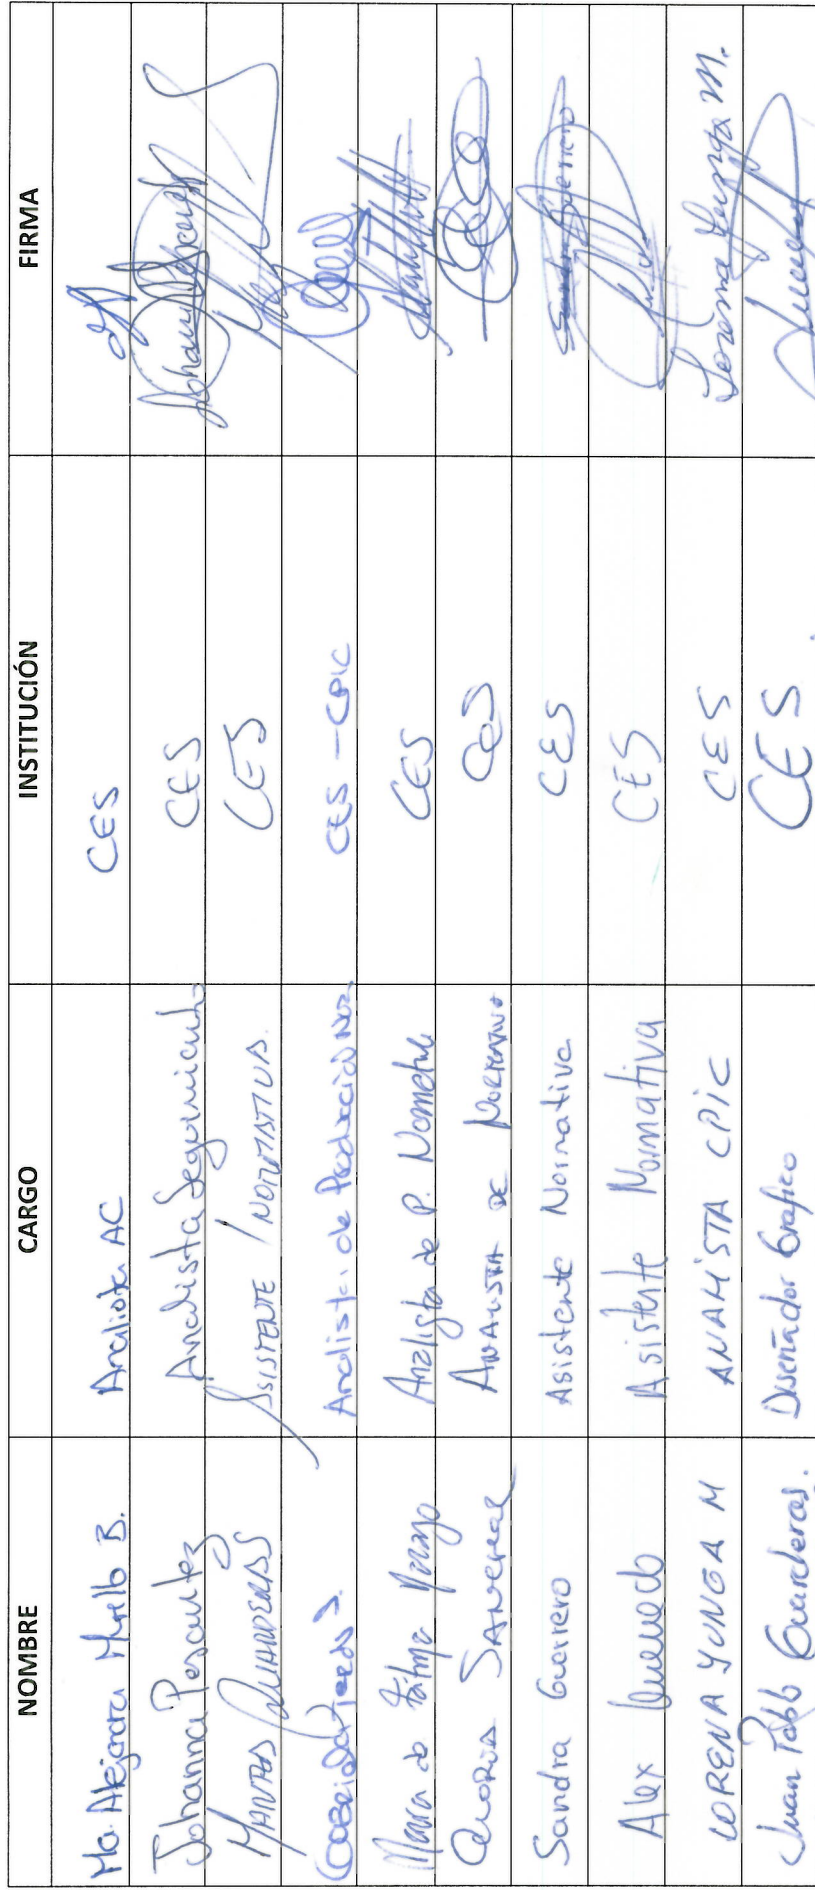 NOMBRE CARGO INSTITUCIÓN FIRMA
Ma. Alejandra Murillo B. Analista AC CES
Johanna Pesantez Analista Seguimiento CES
ASISTENTE / NORMATIVA. CES
Analista de Producción Nor. CES - CPIC
Maria de Fátima Analista de P. Normativa CES
Gloria Sandoval ANALISTA DE NORMATIVA CES
Sandra Guerrero Asistente Normativa CES Sandra Guerrero
Alex Quevedo Asistente Normativa CES
LORENA YUNGA M ANALISTA CPIC CES Lorena Yunga M.
Juan Pablo Guarderas. Diseñador Gráfico CES.